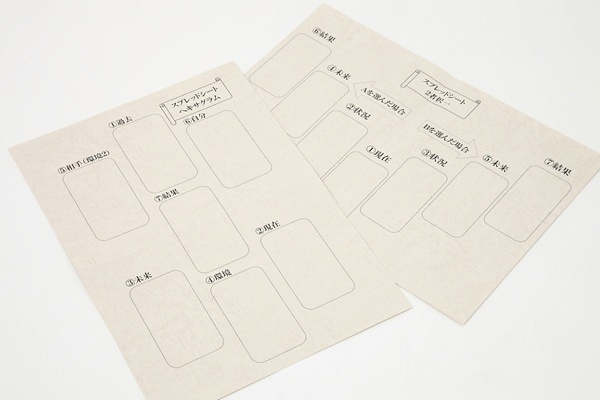 スプレッドシート
ヘキサグラム
①過去
⑥自分
⑤相手(環境2)
⑦結果
②現在
③未来
④環境
スプレッドシート
2者択一
⑥結果
④未来
Aを選んだ場合
②状況
Bを選んだ場合
①現在
③状況
⑤未来
⑦結果